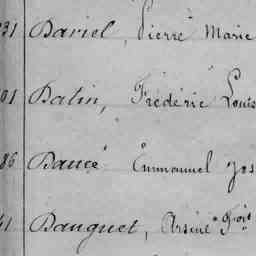 231 Dariel, Pierre Marie
01 Datin, Frédéric Louis
86 Daucé Emmanuel Jos
41 Dauguet, Arsine Fois